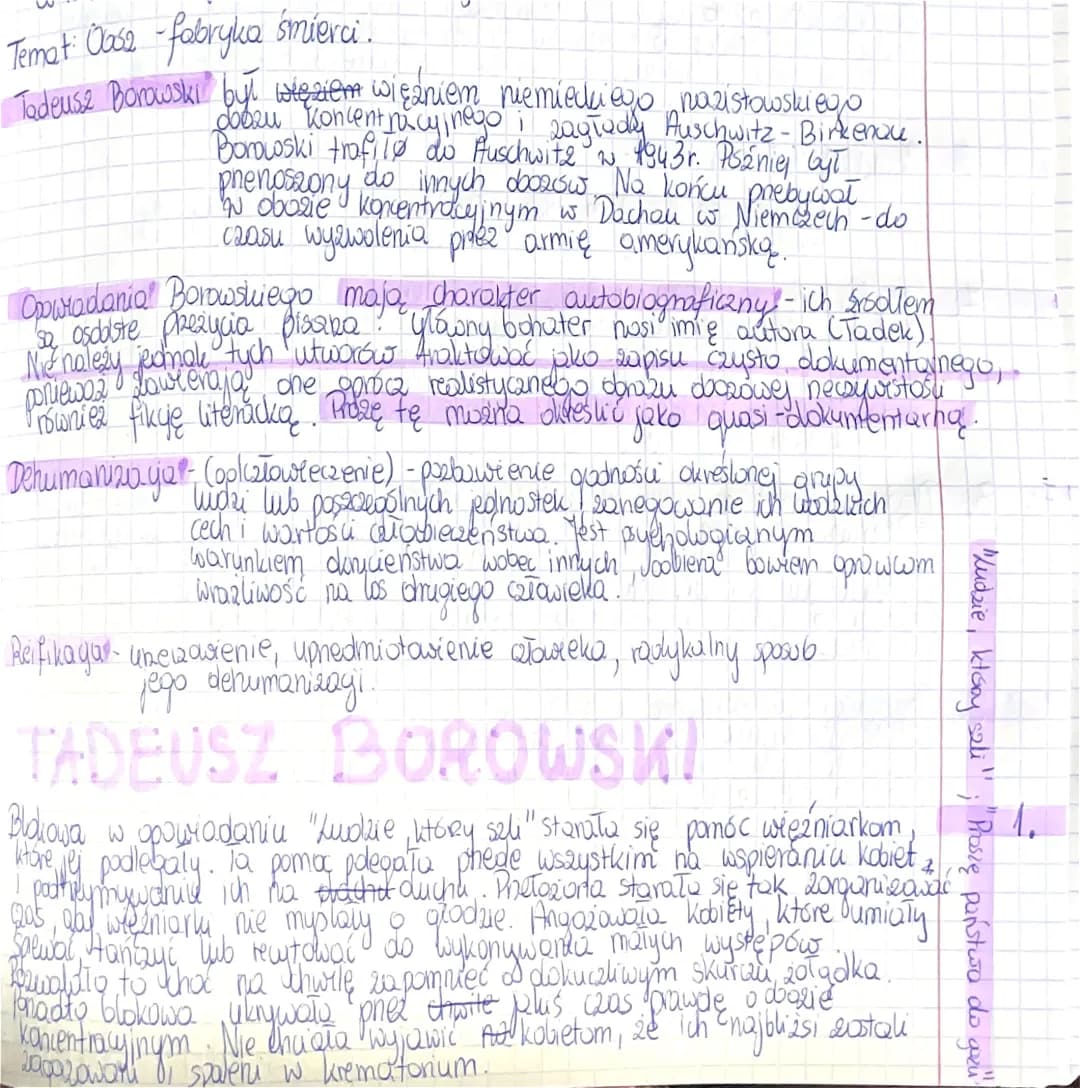 Temat: Obóz - fabryka śmierci.
Tadeusz Borowski był więźniem niemieckiego nazistowskiego
obozu koncentracyjnego i zagłady Auschwitz - Birkenau.
Borowski trafił do Auschwitz w 1943r. Później był
przenoszony do innych obozów. Na końcu przebywał
w obozie koncentracyjnym w Dachau w Niemczech - do
czasu wyzwolenia przez armię amerykańską.
Opowiadania Borowskiego mają charakter autobiograficzny - ich źródłem
są osobiste przeżycia pisarza. Główny bohater nosi imię autora (Tadek).
Nie należy jednak tych utworów traktować jako zapisu czysto dokumentalnego,
ponieważ zawierają one oprócz realistycznego obrazu obozowej rzeczywistości
również fikcję literacką. Prozę tę można określić jako quasi-dokumentarną.
Dehumanizacja - (odczłowieczenie) - pozbawienie godności określonej grupy
ludzi lub poszczególnych jednostek, zanegowanie ich ludzkich
cech i wartości człowieczeństwa. Jest psychologicznym
warunkiem okrucieństwa wobec innych, odbiera bowiem oprawcom
wrażliwość na los drugiego człowieka.
Reifikacja - urzeczowienie, uprzedmiotowienie człowieka, radykalny sposób
jego dehumanizacji.
TADEUSZ BOROWSKI
"Ludzie, którzy szli" i "Proszę państwa do gazu"
1.
Blokowa w opowiadaniu "Ludzie, którzy szli" starała się pomóc więźniarkom,
które jej podlegały. Ta pomoc polegała przede wszystkim na wspieraniu kobiet
i podtrzymywaniu ich na duchu. Przełożona starała się tak zorganizować
czas, aby więźniarki nie myślały o głodzie. Angażowała kobiety, które umiały
śpiewać, tańczyć lub recytować do wykonywania małych występów.
Pozwalało to choć na chwilę zapomnieć o dokuczliwym skurczu żołądka.
Ponadto blokowa ukrywała przez chwile czas prawdę o obozie
koncentracyjnym. Nie chciała wyjawić kobietom, że ich najbliżsi zostali
zagazowani i spaleni w krematorium.